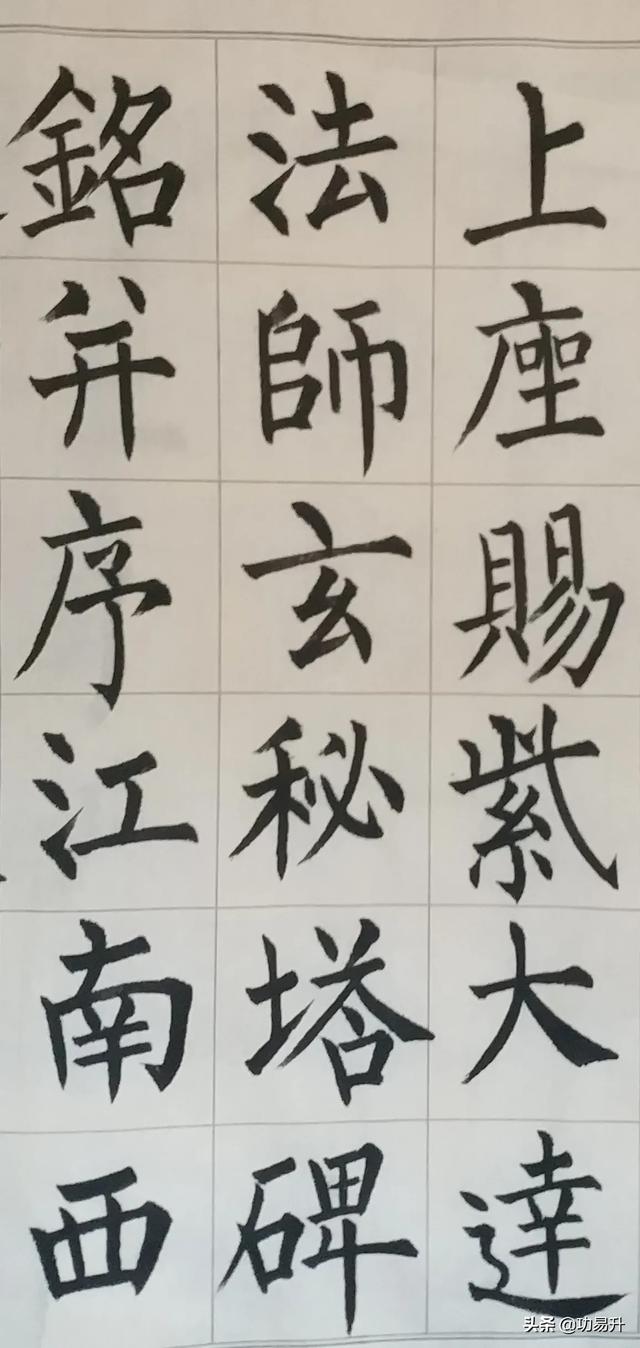 上座賜紫大達
法師玄秘塔碑
銘并序江南西
头条 @功易升